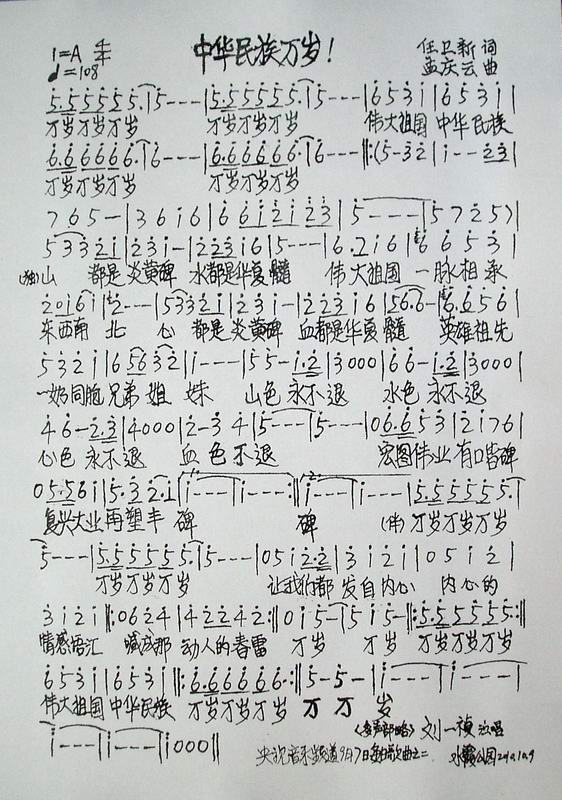 中华民族万岁！
1=A 4/4
♩=108
任卫新 词
孟庆云 曲
5.5 5 5 5 5.|5---|5.5 5 5 5 5.|5---|6 5 3 i|6 5 3 i|
万岁万岁万岁 万岁万岁万岁 伟大祖国 中华民族
6.6 6 6 6 6.|6---|6.6 6 6 6 6.|6---|:(5-32|i--23|
万岁万岁万岁 万岁万岁万岁
7 6 5-|3 6 i 6|6 6 i 2 i 2 3|5---|5 7 2 5)|
5 3 3 2 i|2 3 i-|2 2 3 i 6|5---|6.2 i 6|6 6 5 3|
(独)山 都是 炎黄碑 水都是华夏 髓 伟大祖国 一脉相承
2 0 i 6 i|2---|5 3 3 2 i|2 3 i-|2 2 3 i 6|5 6 6.|6.6 5 6|
东西南 北 心 都是 炎黄碑 血都是华夏 髓 英雄祖先
5 3 2 i|6 5 6 3 2|i---|5 5-i.2|3 0 0 0|6 6-i.2|3 0 0 0|
一奶同胞 兄弟 姐 妹 山色 永不退 水色 永不退
4 6-2.3|4 0 0 0|2-3 4|5---|5---|0 6.6 5 3|2 i 7 6|
心色 永不退 血色不退 宏图伟业 有口皆碑
0 5.5 6 i|5.3 2.1|i---|i---:|i---|i---|5.5 5 5 5 5.|
复兴大业 再塑丰 碑 碑 (伴)万岁万岁万岁
5---|5.5 5 5 5 5.|5---|0 5 i 2.2|3 i 2 i|0 5 i 2|
万岁万岁万岁 让我们都 发自内心 内心的
3 i 2 i|:0 6 2 4|4 2 2 4 2:|0 i 5-|5 i 5-|:5.5 5 5 5 5:|
情感语汇 喊成那 动人的春雷 万岁 万岁 万岁万岁万岁
6 5 3 i|6 5 3 i|:6.6 6 6 6 6.:|5-5-|i---|i---|
伟大祖国 中华民族 万岁万岁万岁 万 万 岁
i---|i---|i000||
《多声部略》 刘一祯 演唱
央视音乐频道9月7日每周歌曲之二